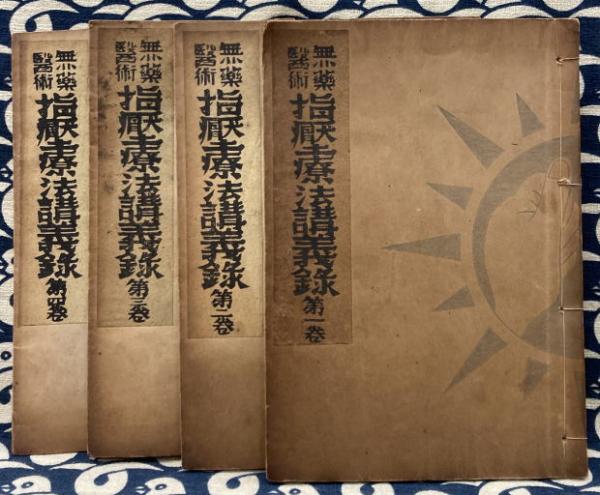 無藥
醫術
指壓療法講義錄
第一卷
無藥
醫術
指壓療法講義錄
第二卷
無藥
醫術
指壓療法講義錄
第三卷
無藥
醫術
指壓療法講義錄
第四卷